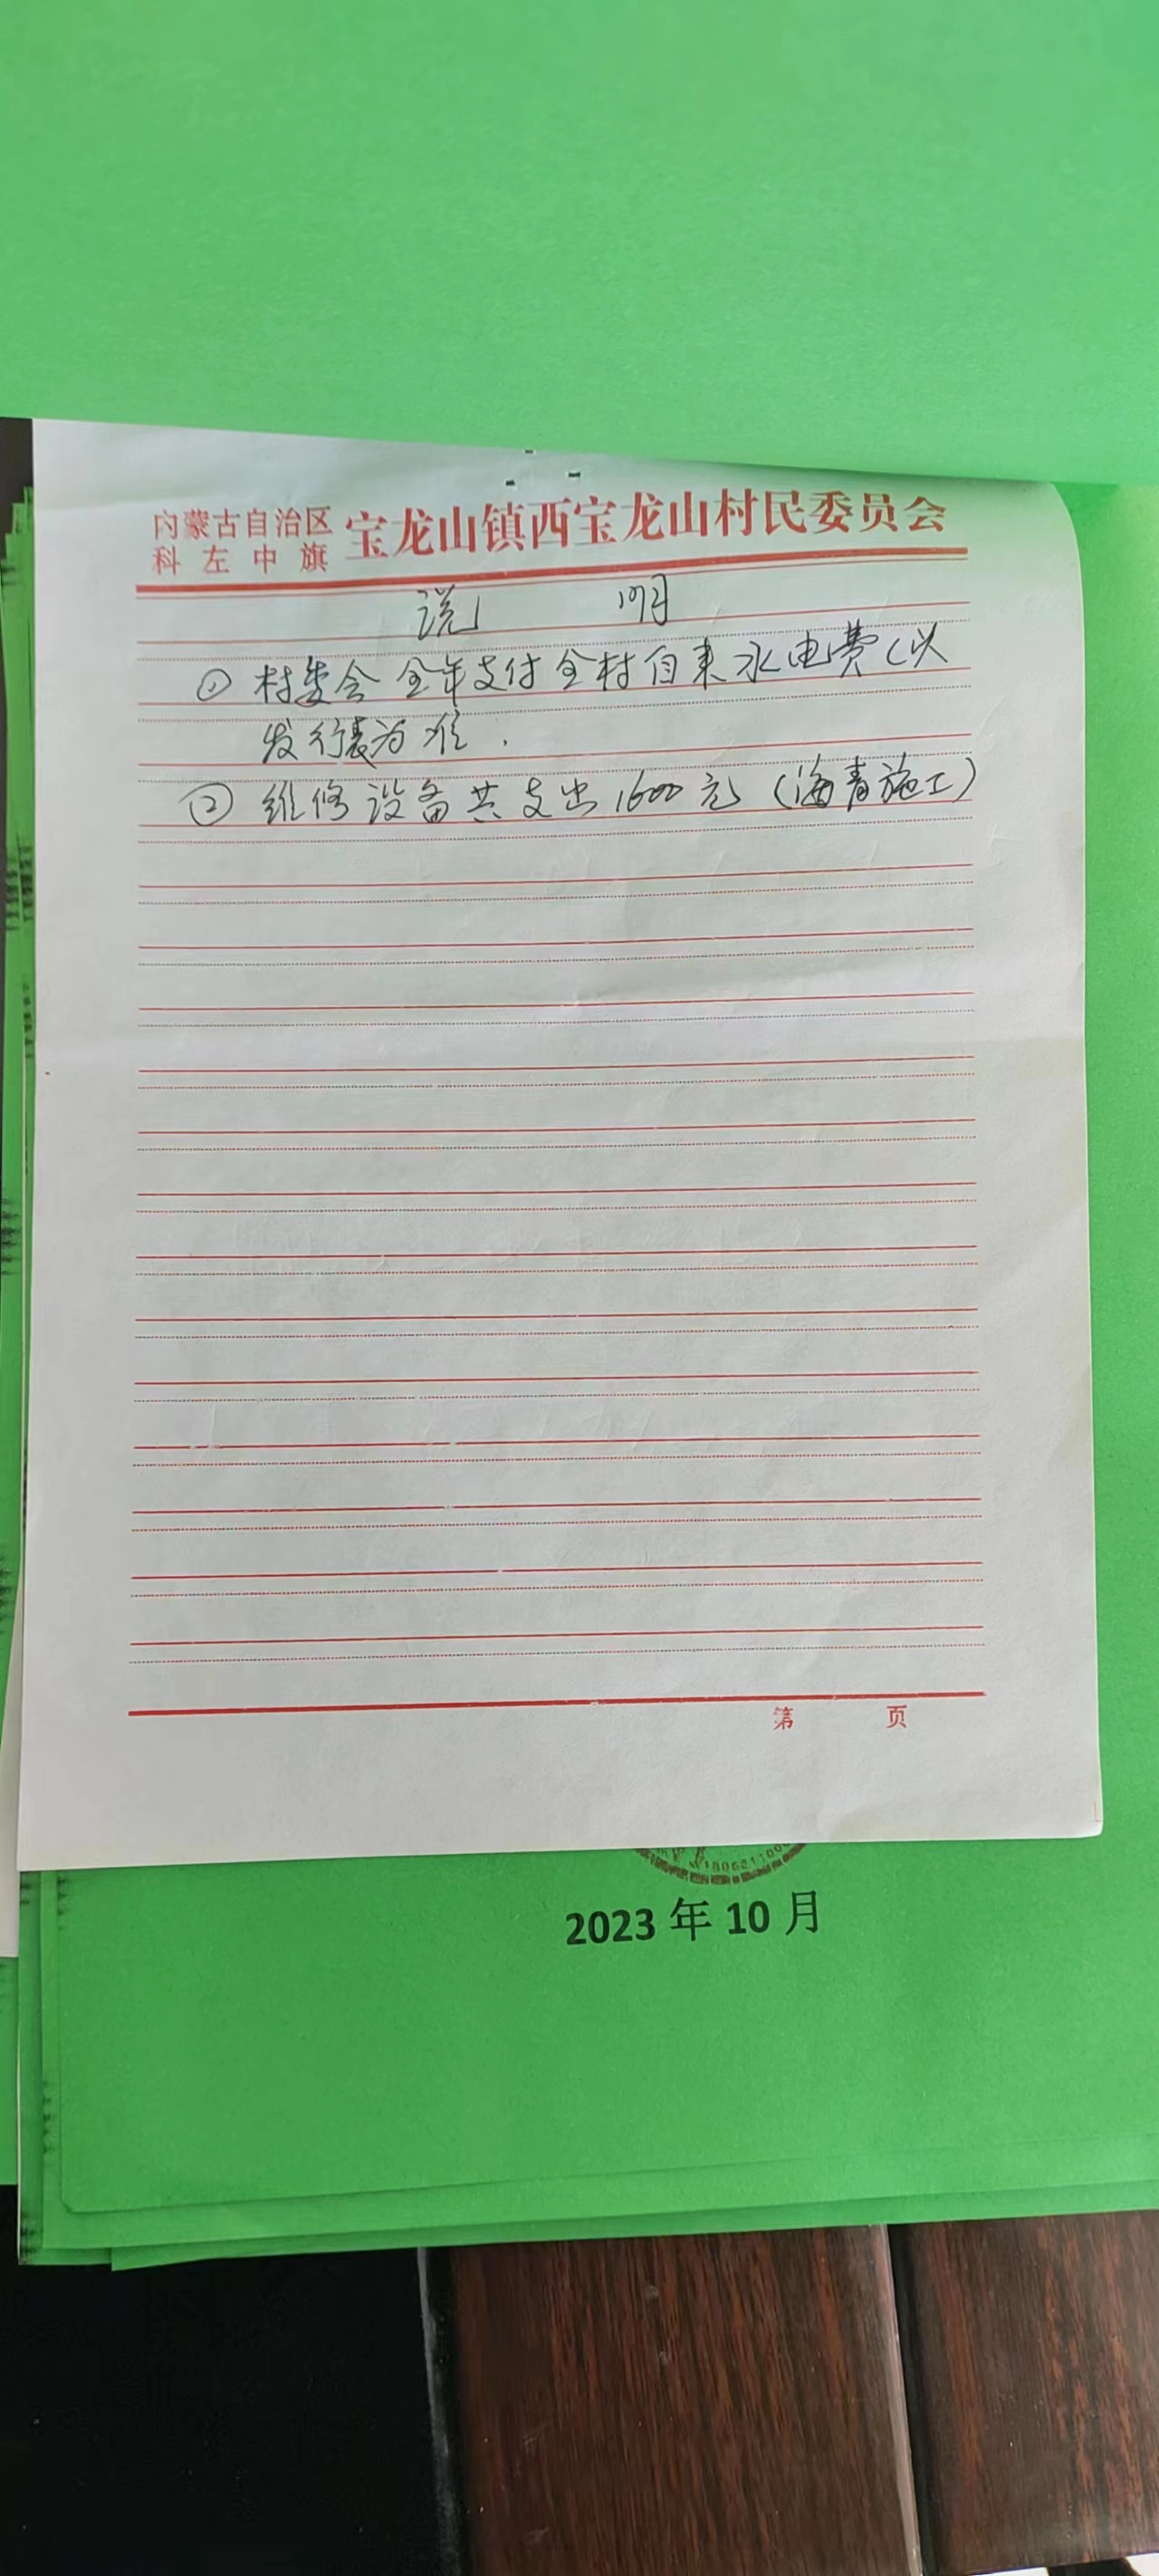 内蒙古自治区
科左中旗
宝龙山镇西宝龙山村民委员会
说 明
① 村委会全年支付全村自来水电费(以
发行表为准.
② 维修设备共支出1600元(海青施工)
第 页
2023年10月